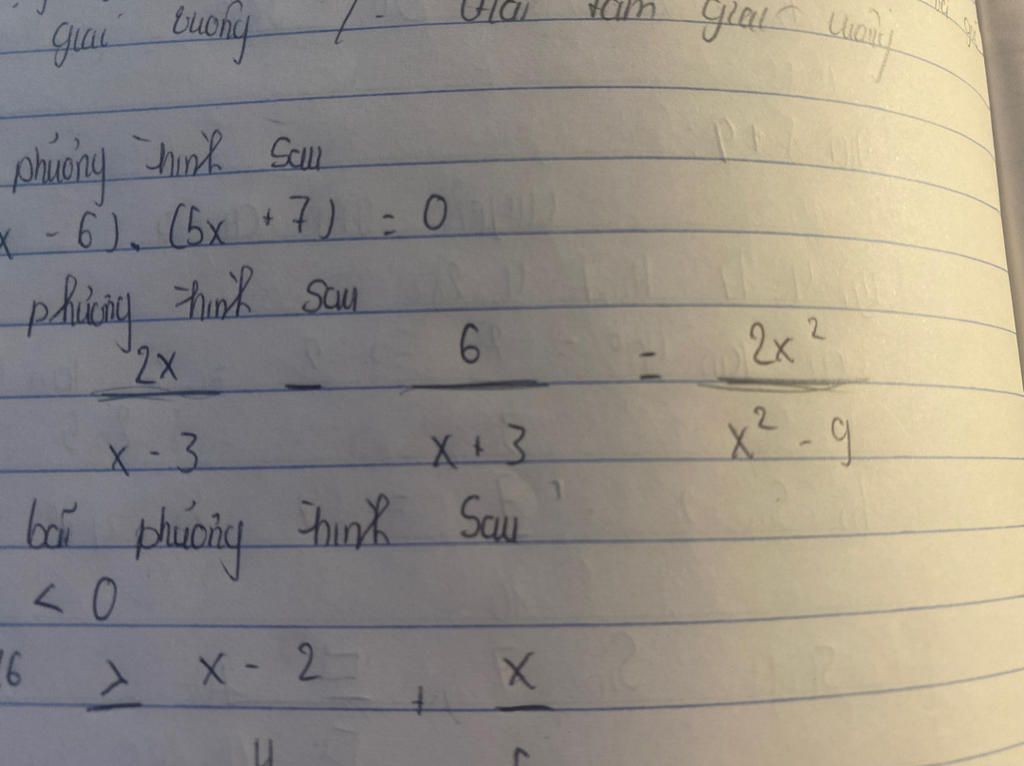 giai vuông 1- giai vuông
phương trình sau
x - 6). (5x + 7) = 0
phương trình sau
2x/(x - 3) - 6/(x + 3) = 2x²/(x² - 9)
phương trình sau
< 0
6 ≥ x - 2 + x